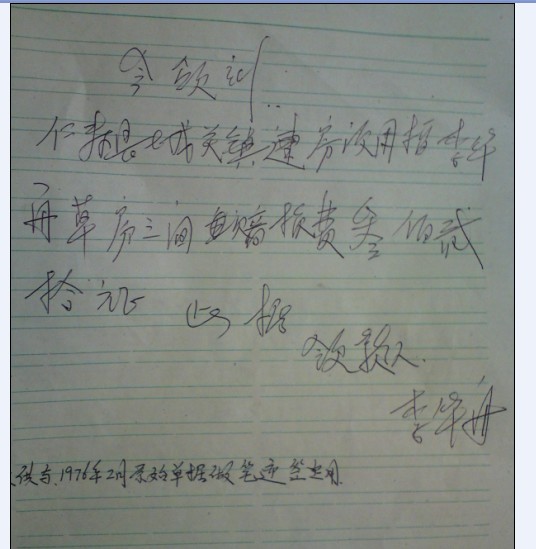 今领到:
仁寿县城关镇建房没用指李华
舟草房三间 赔损费叁佰贰
拾元正 此据
领款人.
李华舟
供与1976年2月原始单据做笔迹鉴定用.